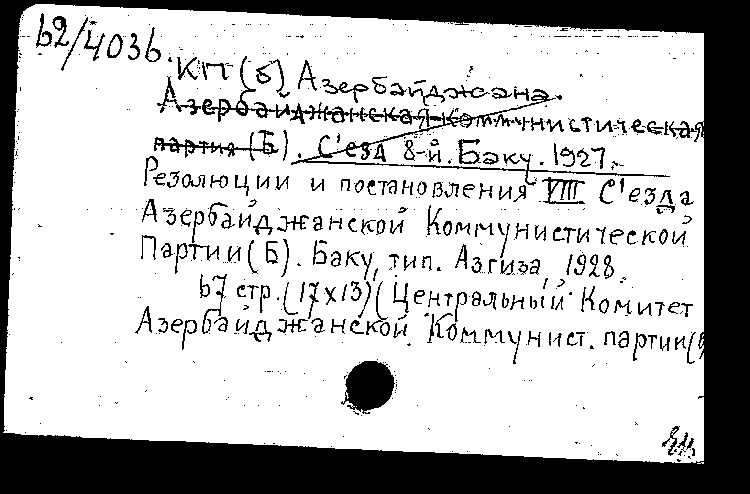 62/4036.
КП(б) Азербайджана.
Азербайджанская коммунистическая
партия (Б). С'езд 8-й. Баку. 1927.
Резолюции и постановления VIII С'езда
Азербайджанской Коммунистической
Партии (Б). Баку, тип. Азгиза, 1928.
67 стр. (17х13) (Центральный Комитет
Азербайджанской Коммунист. партии (